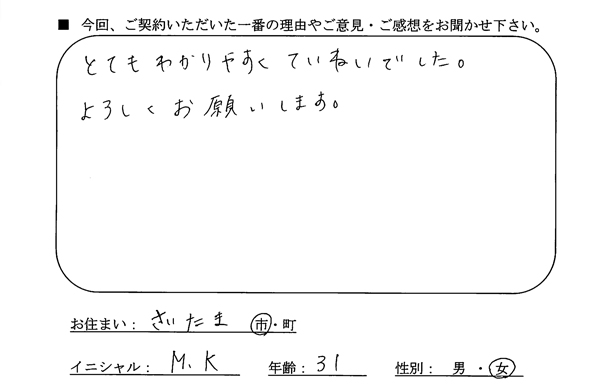 ■ 今回、ご契約いただいた一番の理由やご意見・ご感想をお聞かせ下さい。
とてもわかりやすくていねいでした。
よろしくお願いします。
お住まい： さいたま 市・町
イニシャル： M.K 年齢： 31 性別： 男 ・ 女